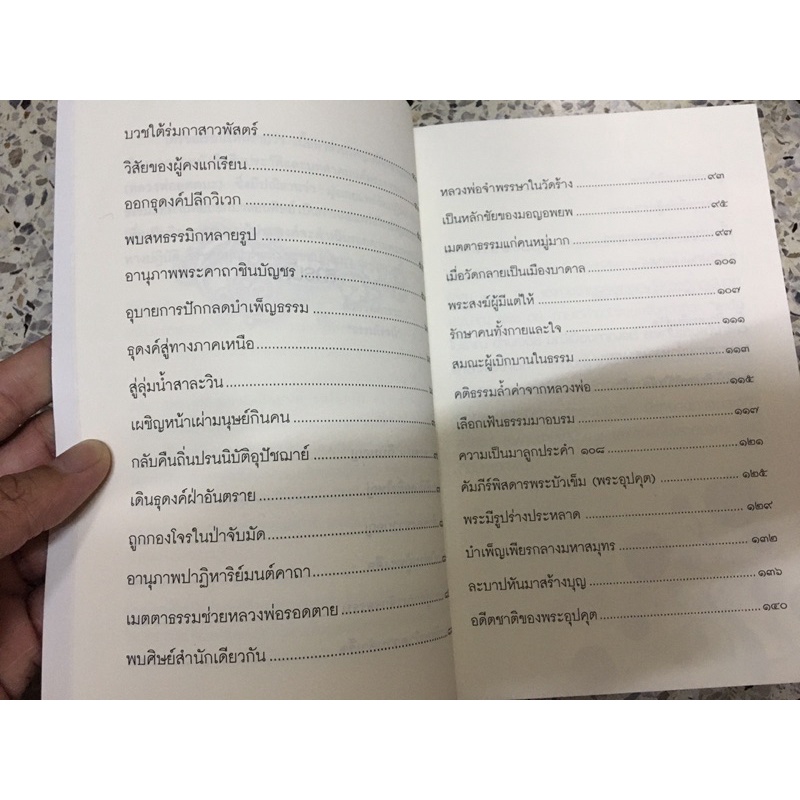 บวชใต้ร่มกาสาวพัสตร์
วิสัยของผู้คงแก่เรียน
ออกธุดงค์ปลีกวิเวก
พบสหธรรมิกหลายรูป
อานุภาพพระคาถาชินบัญชร
อุบายการปักกลดบำเพ็ญธรรม
ธุดงค์สู่ทางภาคเหนือ
สู่ลุ่มน้ำสาละวิน
เผชิญหน้าเผ่ามนุษย์กินคน
กลับคืนถิ่นปรนนิบัติอุปัชฌาย์
เดินธุดงค์ฝ่าอันตราย
ถูกกองโจรในป่าจับมัด
อานุภาพปาฏิหาริย์มนต์คาถา
เมตตาธรรมช่วยหลวงพ่อรอดตาย
พบศิษย์สำนักเดียวกัน
หลวงพ่อจำพรรษาในวัดร้าง ๙๓
เป็นหลักชัยของมอญอพยพ ๙๕
เมตตาธรรมแก่คนหมู่มาก ๙๗
เมื่อวัดกลายเป็นเมืองบาดาล ๑๐๑
พระสงฆ์ผู้มีแต่ให้ ๑๐๗
รักษาคนทั้งกายและใจ ๑๑๑
สมณะผู้เบิกบานในธรรม ๑๑๓
คติธรรมล้ำค่าจากหลวงพ่อ ๑๑๕
เลือกเฟ้นธรรมมาอบรม ๑๑๗
ความเป็นมาลูกประคำ ๑๐๘ ๑๒๑
คัมภีร์พิสดารพระบัวเข็ม (พระอุปคุต) ๑๒๕
พระมีรูปร่างประหลาด ๑๒๙
บำเพ็ญเพียรกลางมหาสมุทร ๑๓๒
ละบาปหันมาสร้างบุญ ๑๓๖
อดีตชาติของพระอุปคุต ๑๔๐